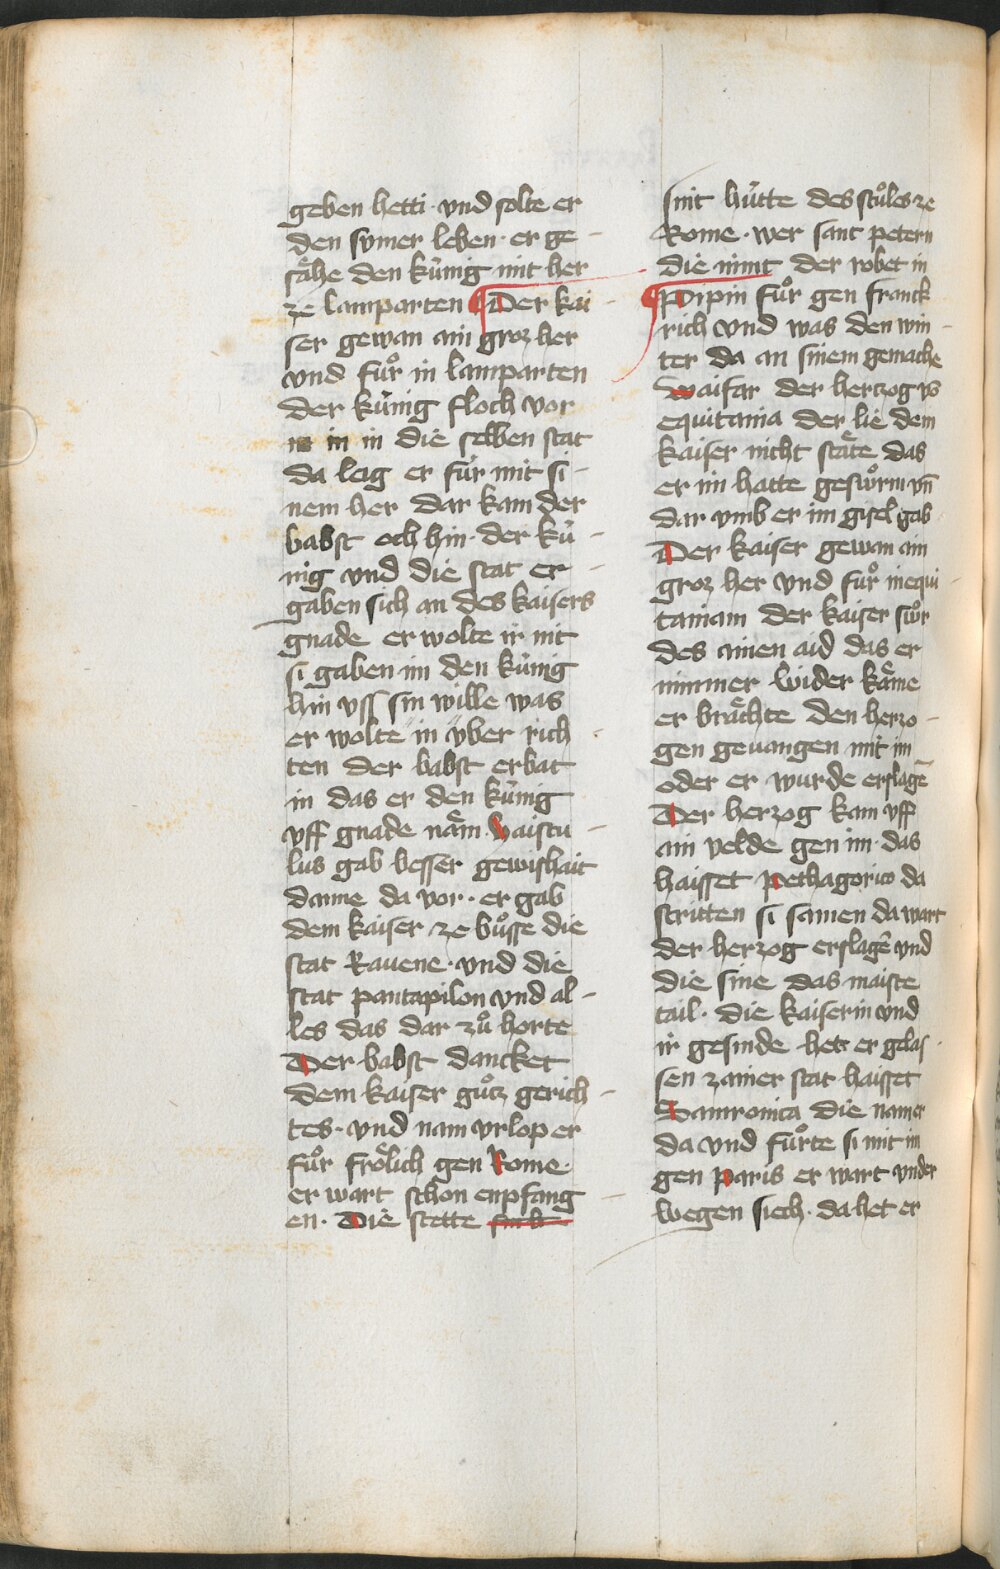 geben hetti · vnd solte er
den symer leben · er ge -
sähe den kúnig mit her
ze lamparten Der kai -
ser gewan ain groz her
vnd fuͦr in lamparten
der kúnig floch vor
in in die selben stat
da lag er fúr mit si -
nem her dar kam der
babst och hin · der kú -
nig vnd die stat er -
gaben sich an des kaisers
gnade er wolte ir nit
si gaben im den kúnig
hin vss sin wille was
er wolte in v́ber rich -
ten der babst erbat
in das er den kúnig
vff gnade näm · haistu -
lus gab besser gewishait
danne da vor · er gab
dem kaiser ze buͦsse die
stat Rauene · vnd die
stat pantapilon vnd al -
les das dar zuͦ horte
Der babst dancket
dem kaiser guͦtz gerich -
tes · vnd nam vrlop er
fuͦr frölich gen Rome ·
er wart schon enpfang -
en · Die stette
sint hútte des stuͦles ze
Rome · wer sant petern
die nimt der robet in
Pipin fuͦr gen franck
rich vnd was den win -
ter da an sinem gemache
waifar der hertzog vō
equitania der lie dem
kaiser nicht stäte das
er im hatte geswoͦrm vn̄
dar vmb er im gisel gab
Der kaiser gewan ain
groz her vnd fuͦr in equi -
taniam der kaiser swuͦr
des ainen aid das er
nimmer wider käme
er brächte den herzo -
gen geuangen mit im
oder er wurde erslagē
Der herzog kam vff
ain velde gen im · das
haisset pethagorico da
stritten si samen da wart
der herzog erslagē vnd
die sine das maiste
tail · die kaiserin vnd
ir gesinde het er gelas -
sen zainer stat haisset
Samronica die namer
da vnd fuͦrte si mit im
gen paris er wart vnder
wegen siech · da het er